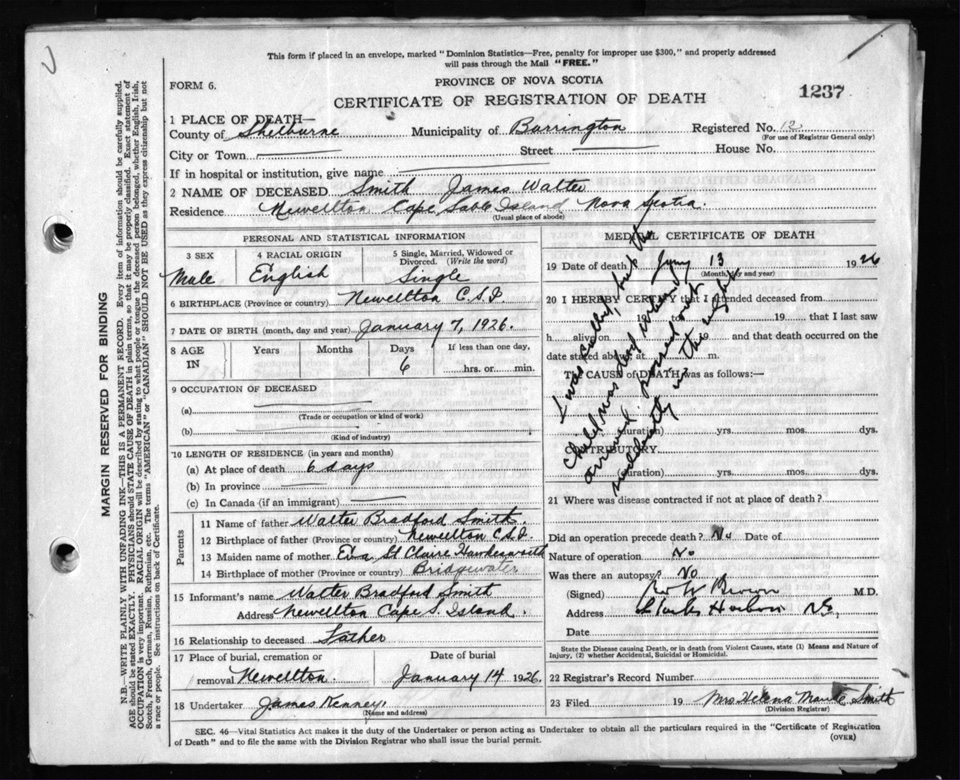 This form if placed in an envelope, marked "Dominion Statistics—Free, penalty for improper use $300," and properly addressed
will pass through the Mail "FREE."
FORM 6.
PROVINCE OF NOVA SCOTIA
CERTIFICATE OF REGISTRATION OF DEATH
1237
1 PLACE OF DEATH—
County of Shelburne Municipality of Barrington Registered No. 12
(For use of Registrar General only)
City or Town Street House No.
If in hospital or institution, give name
2 NAME OF DECEASED Smith James Walter
Residence Newellton Cape Sable Island Nova Scotia.
(Usual place of abode)
PERSONAL AND STATISTICAL INFORMATION
3 SEX 4 RACIAL ORIGIN 5 Single, Married, Widowed or
Divorced. (Write the word)
Male English Single
6 BIRTHPLACE (Province or country) Newellton C.S.I.
7 DATE OF BIRTH (month, day and year) January 7, 1926.
8 AGE IN Years Months Days If less than one day,
6 hrs. or min.
9 OCCUPATION OF DECEASED
(a)
(Trade or occupation or kind of work)
(b)
(Kind of industry)
10 LENGTH OF RESIDENCE (in years and months)
(a) At place of death 6 days
(b) In province
(c) In Canada (if an immigrant)
Parents
11 Name of father Walter Bradford Smith.
12 Birthplace of father (Province or country) Newellton C.S.I
13 Maiden name of mother Eva St Claire Hawkesworth
14 Birthplace of mother (Province or country) Bridgewater
15 Informant's name Walter Bradford Smith
Address Newellton Cape S. Island.
16 Relationship to deceased Father
17 Place of burial, cremation or Date of burial
removal Newellton. January 14 1926.
18 Undertaker James Kenney
(Name and address)
MEDICAL CERTIFICATE OF DEATH
19 Date of death Jany 13 1926
(Month, day and year)
20 I HEREBY CERTIFY that I attended deceased from
19 to 19 that I last saw
h alive on 19 and that death occurred on the
date stated above at m.
The CAUSE of DEATH was as follows:—
I was called, but the
child was dead when I
arrived. passed out
suddenly in the night
(duration) yrs. mos. dys.
CONTRIBUTORY
(duration) yrs. mos. dys.
21 Where was disease contracted if not at place of death?
Did an operation precede death? No Date of
Nature of operation No
Was there an autopsy? No
(Signed) W Brown M.D.
Address Clarks Harbour NS.
Date
State the Disease causing Death, or in death from Violent Causes, state (1) Means and Nature of
Injury, (2) whether Accidental, Suicidal or Homicidal.
22 Registrar's Record Number
23 Filed 19 Mrs Helena Smith
(Division Registrar)
SEC. 46—Vital Statistics Act makes it the duty of the Undertaker or person acting as Undertaker to obtain all the particulars required in the "Certificate of Registration
of Death" and to file the same with the Division Registrar who shall issue the burial permit.
(OVER)
MARGIN RESERVED FOR BINDING
N.B.—WRITE PLAINLY WITH UNFADING INK—THIS IS A PERMANENT RECORD. Every item of information should be carefully supplied.
AGE should be stated EXACTLY. PHYSICIANS should STATE CAUSE OF DEATH in plain terms, so that it may be properly classified. Exact statement of
OCCUPATION is very important. RACIAL ORIGIN will be described by stating to what people or tongue the deceased person belonged, whether English, Irish,
Scotch, French, German, Russian, Ruthenian, etc. The terms "AMERICAN" or "CANADIAN" SHOULD NOT BE USED as they express citizenship but not
a race or people. See instructions on back of Certificate.